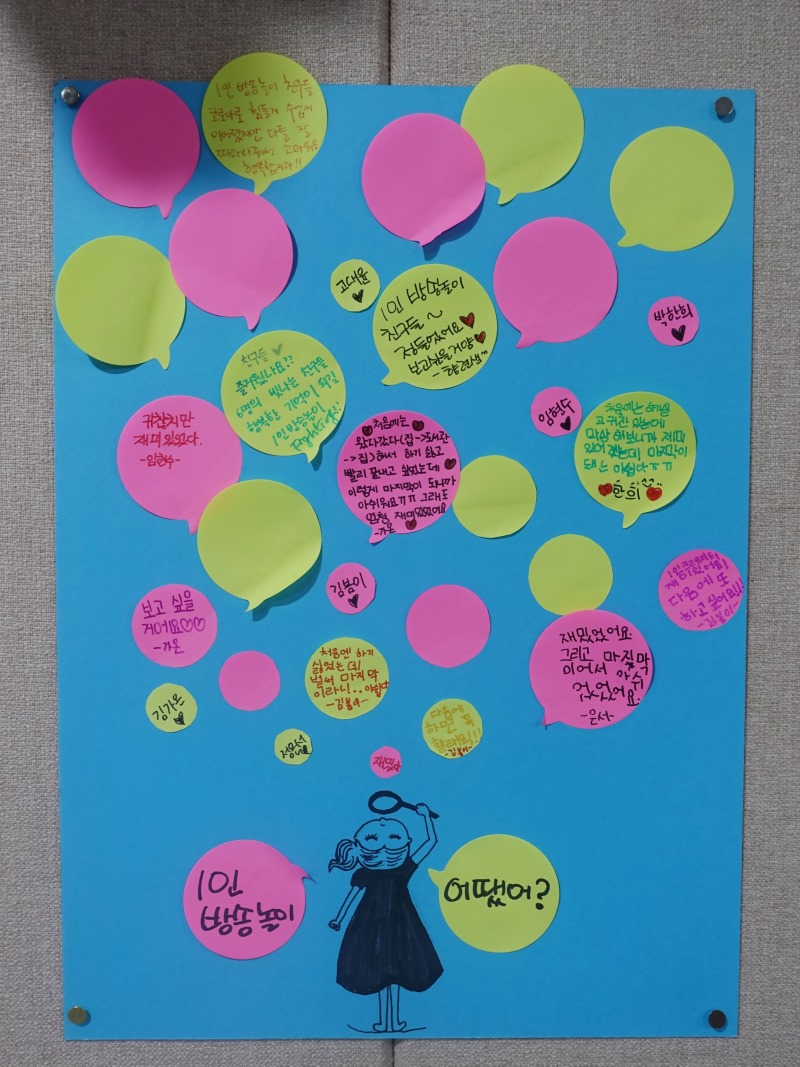 1인 방송놀이 친구들
코로나로 힘들게 수업이
이어졌지만 다들 잘
따라와줘서 고마워용
행복합시다!!
고대윤
1인 방송놀이
친구들~
정들었어요
보고싶을거양
박한희
친구들
즐거웠나요??
6명의 빛나는 친구들
행복한 기억이 되길
1인방송놀이
임현수
처음에는
교귀진 않는데
막상 해보니까 재미
있어졌는데 마지막이
돼는 아쉽다ㅠㅠ
한희
귀찮지만
재미있었다.
-임현수-
처음에는
왔다갔다(집->2시간
->집)해서 하기 싫고
빨리 끝내고 싶었는데
이렇게 마지막이 되니까
아쉬워요ㅠㅠ 그래도
엄청 재미있었어요
-가온
김봄이
보고 싶을
거에요♡♡
-가온
재미있어요!
다음에 또
하고싶어요!!
-김봄이-
처음엔 하기
싫었는데!
벌써 마지막
이라니..아쉽다
재밌었어요
그리고 마지막
이어서 아쉬
웠었어요
-은서-
김가온
정은서
다음에
하면 꼭
할래요!!
1인
방송놀이
어땠어?